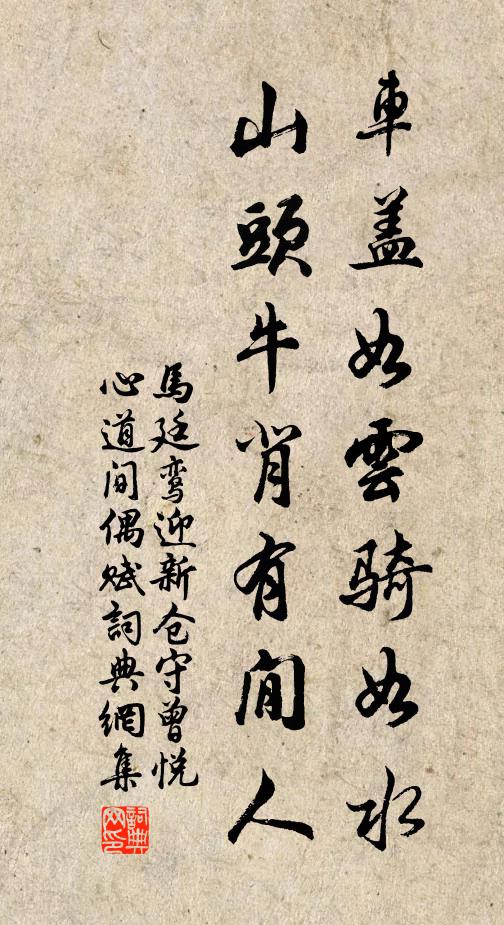 車盖如雲騎如水
山頭牛背有閒人
馬廷鸾迎新仓守曾悦
心道间偶赋詞典網集
詞典网印